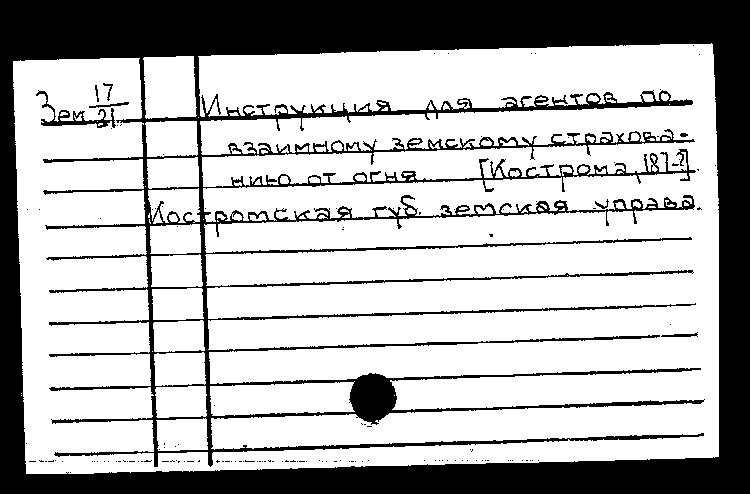 Зем 17/21 Инструкция для агентов по
взаимному земскому страхова-
нию от огня. [Кострома, 187-?]
Костромская губ. земская управа.